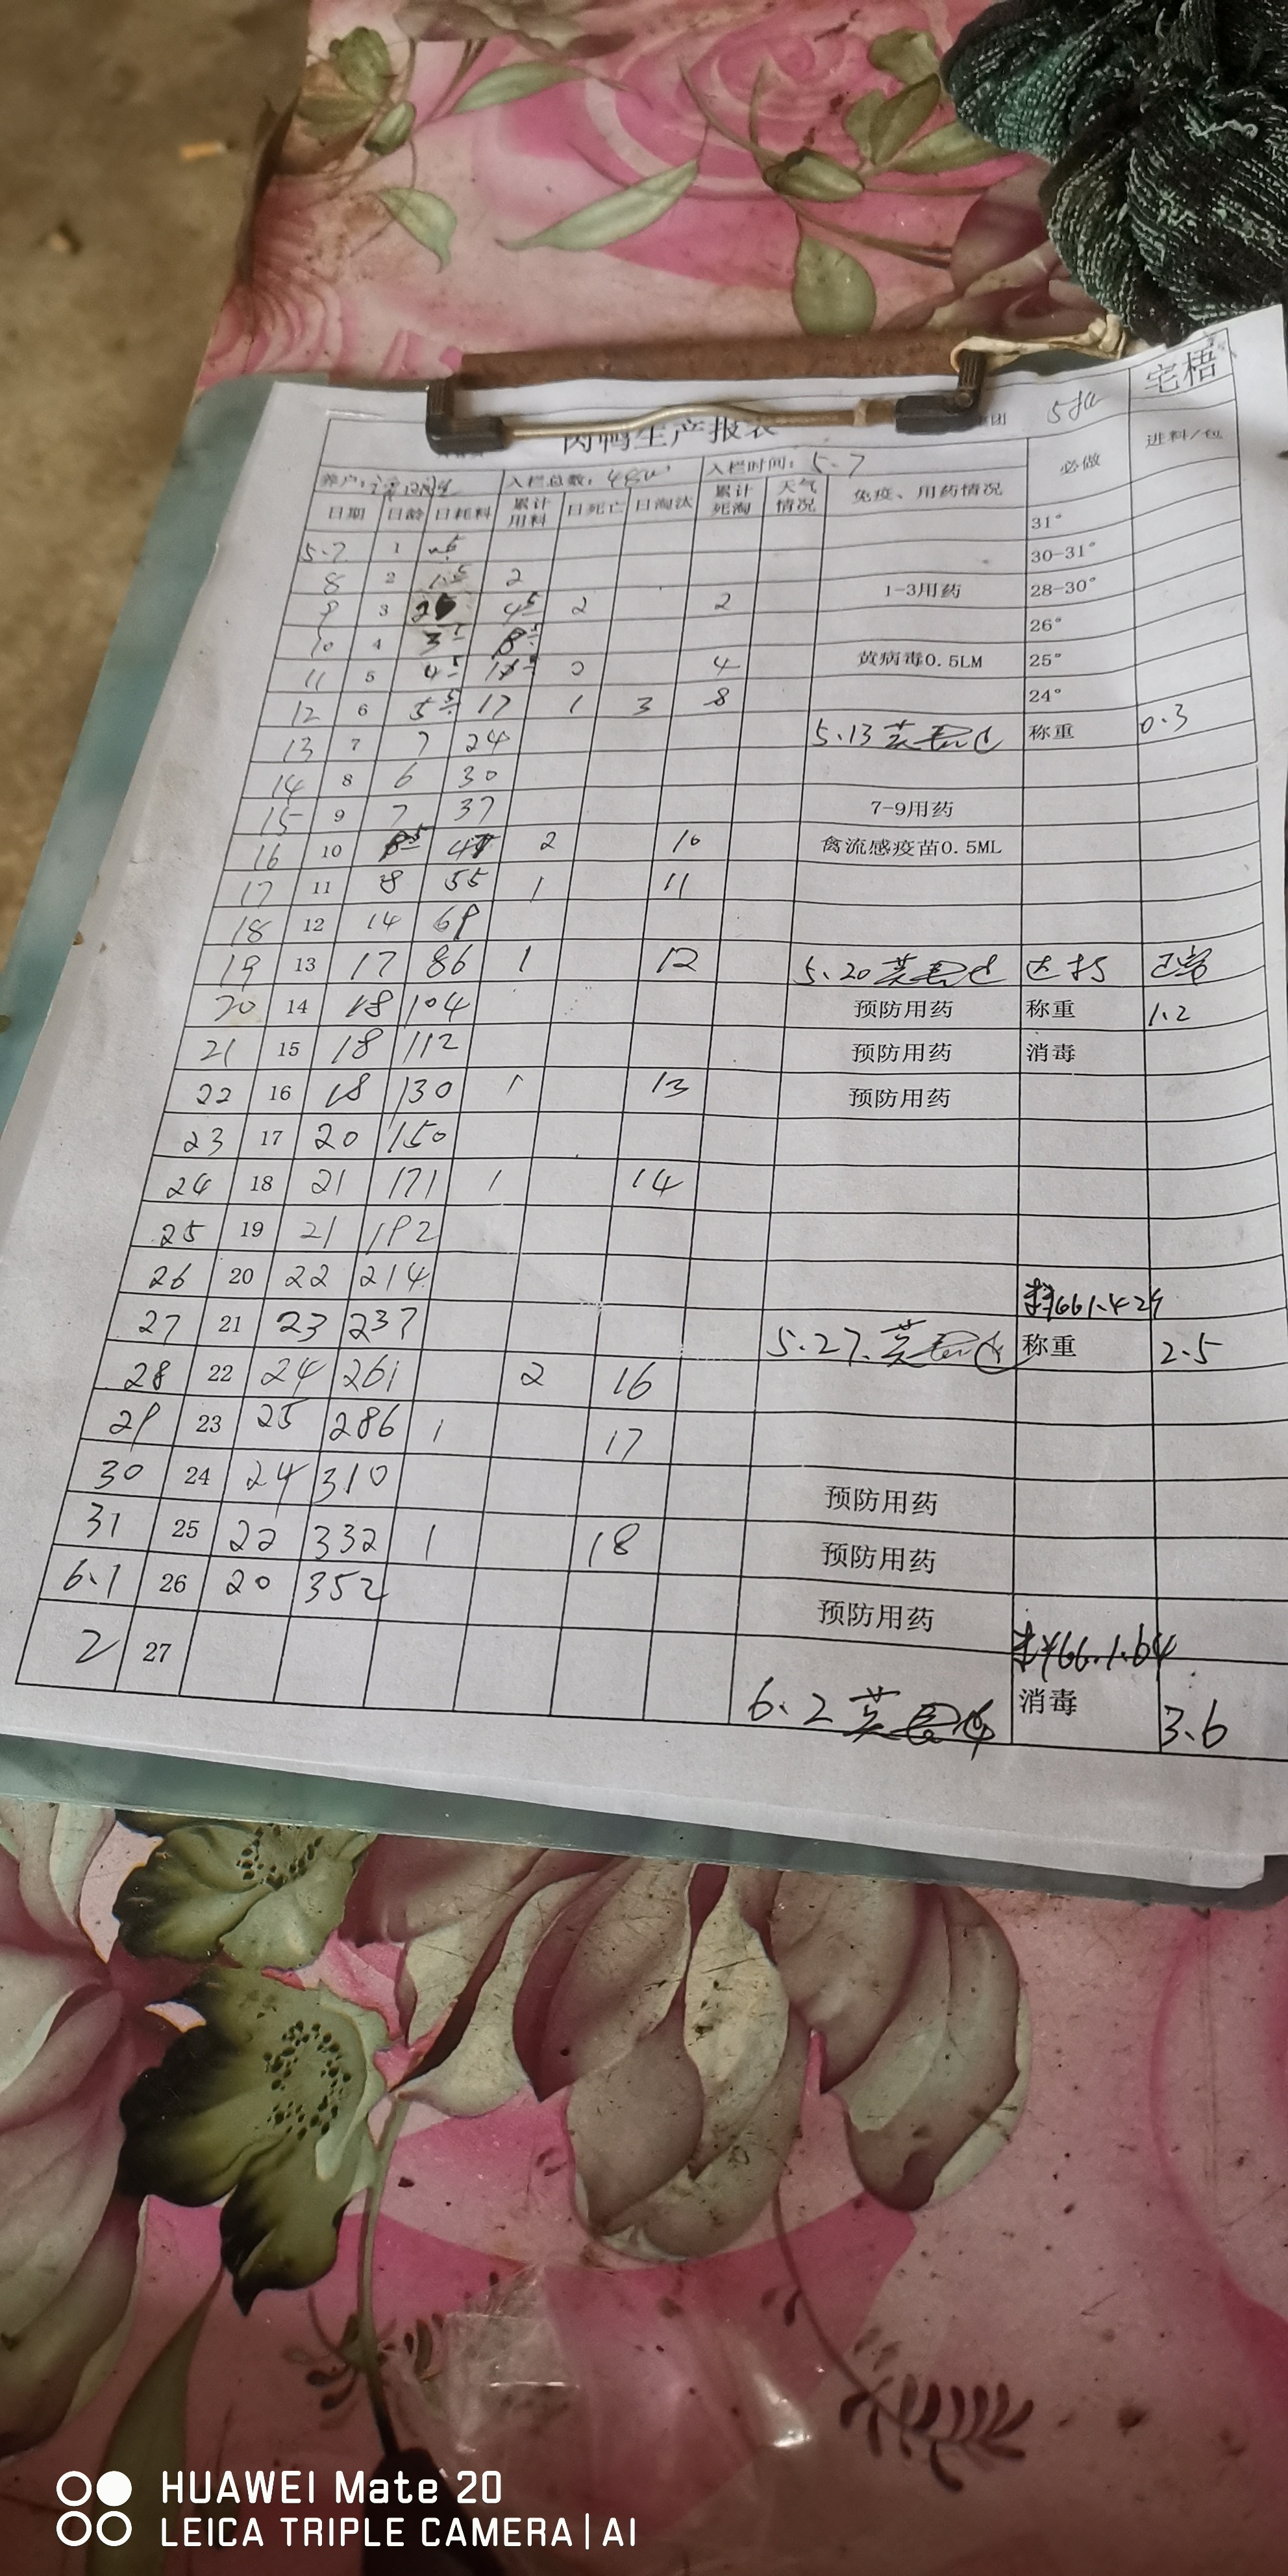 宅梧
肉鸭生产报表 集团
养户: 入栏总数: 入栏时间: 5.7 必做 进料/包
日期 日龄 日耗料 累计用料 日死亡 日淘汰 累计死淘 天气情况 免疫、用药情况
5.7 1 31°
8 2 1.5 2 30-31°
9 3 4.5 2 2 1-3用药 28-30°
10 4 26°
11 5 4.5 4 黄病毒0.5LM 25°
12 6 5.5 17 1 3 8 24°
13 7 7 24 5.13 称重 0.3
14 8 6 30
15 9 7 37 7-9用药
16 10 2 10 禽流感疫苗0.5ML
17 11 8 55 1 11
18 12 14 69
19 13 17 86 1 12 5.20
20 14 18 104 预防用药 称重 1.2
21 15 18 112 预防用药 消毒
22 16 18 130 1 13 预防用药
23 17 20 150
24 18 21 171 1 14
25 19 21 192
26 20 22 214
27 21 23 237 5.27. 称重 2.5
28 22 24 261 2 16
29 23 25 286 1 17
30 24 24 310 预防用药
31 25 22 332 1 18 预防用药
6.1 26 20 352 预防用药
2 27 6.2 消毒 3.6
HUAWEI Mate 20
LEICA TRIPLE CAMERA | AI